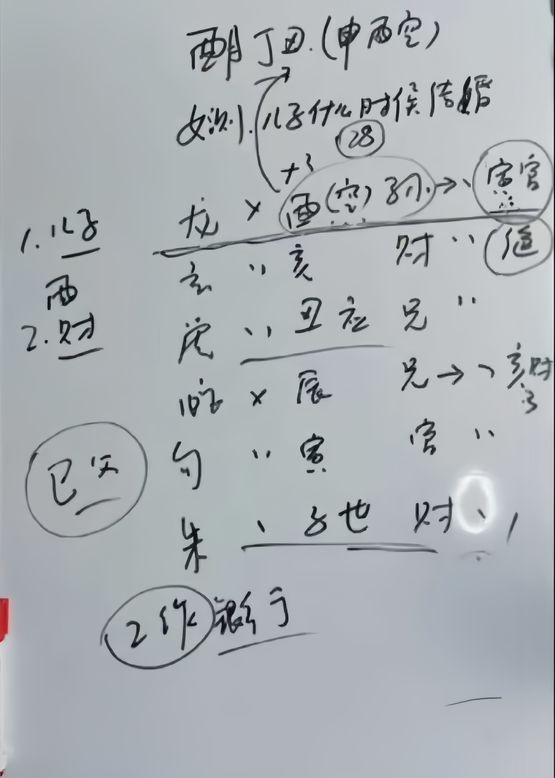 酉月丁丑.(申酉空)
女测.儿子什么时候结婚
28
龙 × 酉(空)孙 → 、寅官
1.儿子
玄 〃 亥 财 〃 
酉
2.财
虎 〃 丑应 兄 〃
× 辰 兄 → 、亥财
勾 〃 寅 官 〃
巳父
朱 、 子世 财 、
工作 银行